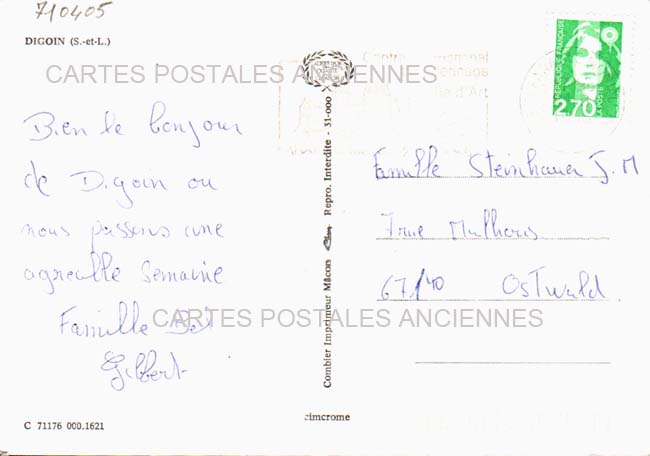 710405
DIGOIN (S.-et-L.)
CARTES POSTALES ANCIENNES
REPUBLIQUE FRANÇAISE
LA POSTE
2,70
Bien le bonjour
de Digoin ou
nous passons une
agreable Semaine
Famille
Gilbert
Combier Imprimeur Mâcon
Repro. Interdite - 31-000
Famille Steinhauer J. M
7 rue Mulhous
67140 Ostwald
CARTES POSTALES ANCIENNES
C 71176 000.1621
cimcrome